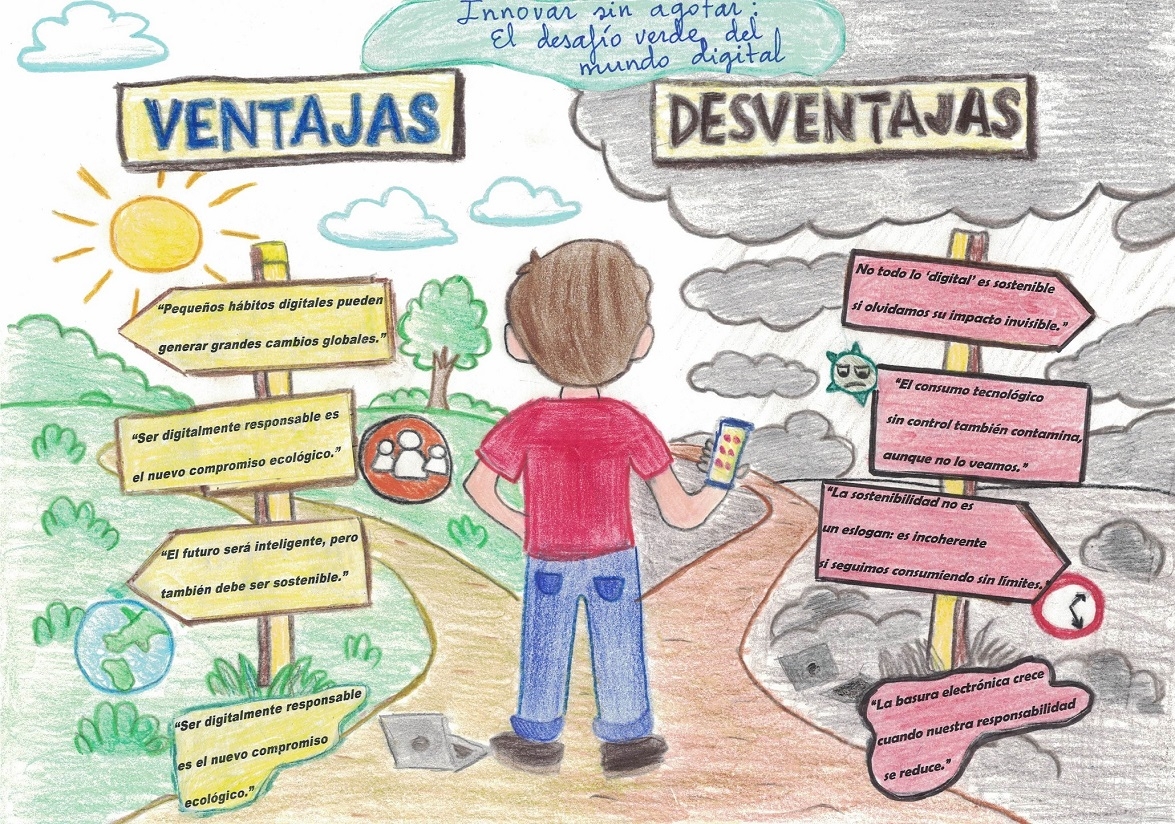 Innovar sin agotar:
El desafío verde del
mundo digital
VENTAJAS
DESVENTAJAS
“Pequeños hábitos digitales pueden
generar grandes cambios globales.”
“Ser digitalmente responsable es
el nuevo compromiso ecológico.”
“El futuro será inteligente, pero
también debe ser sostenible.”
“Ser digitalmente responsable
es el nuevo compromiso
ecológico.”
No todo lo ‘digital’ es sostenible
si olvidamos su impacto invisible.”
“El consumo tecnológico
sin control también contamina,
aunque no lo veamos.”
“La sostenibilidad no es
un eslogan: es incoherente
si seguimos consumiendo sin límites.”
“La basura electrónica crece
cuando nuestra responsabilidad
se reduce.”